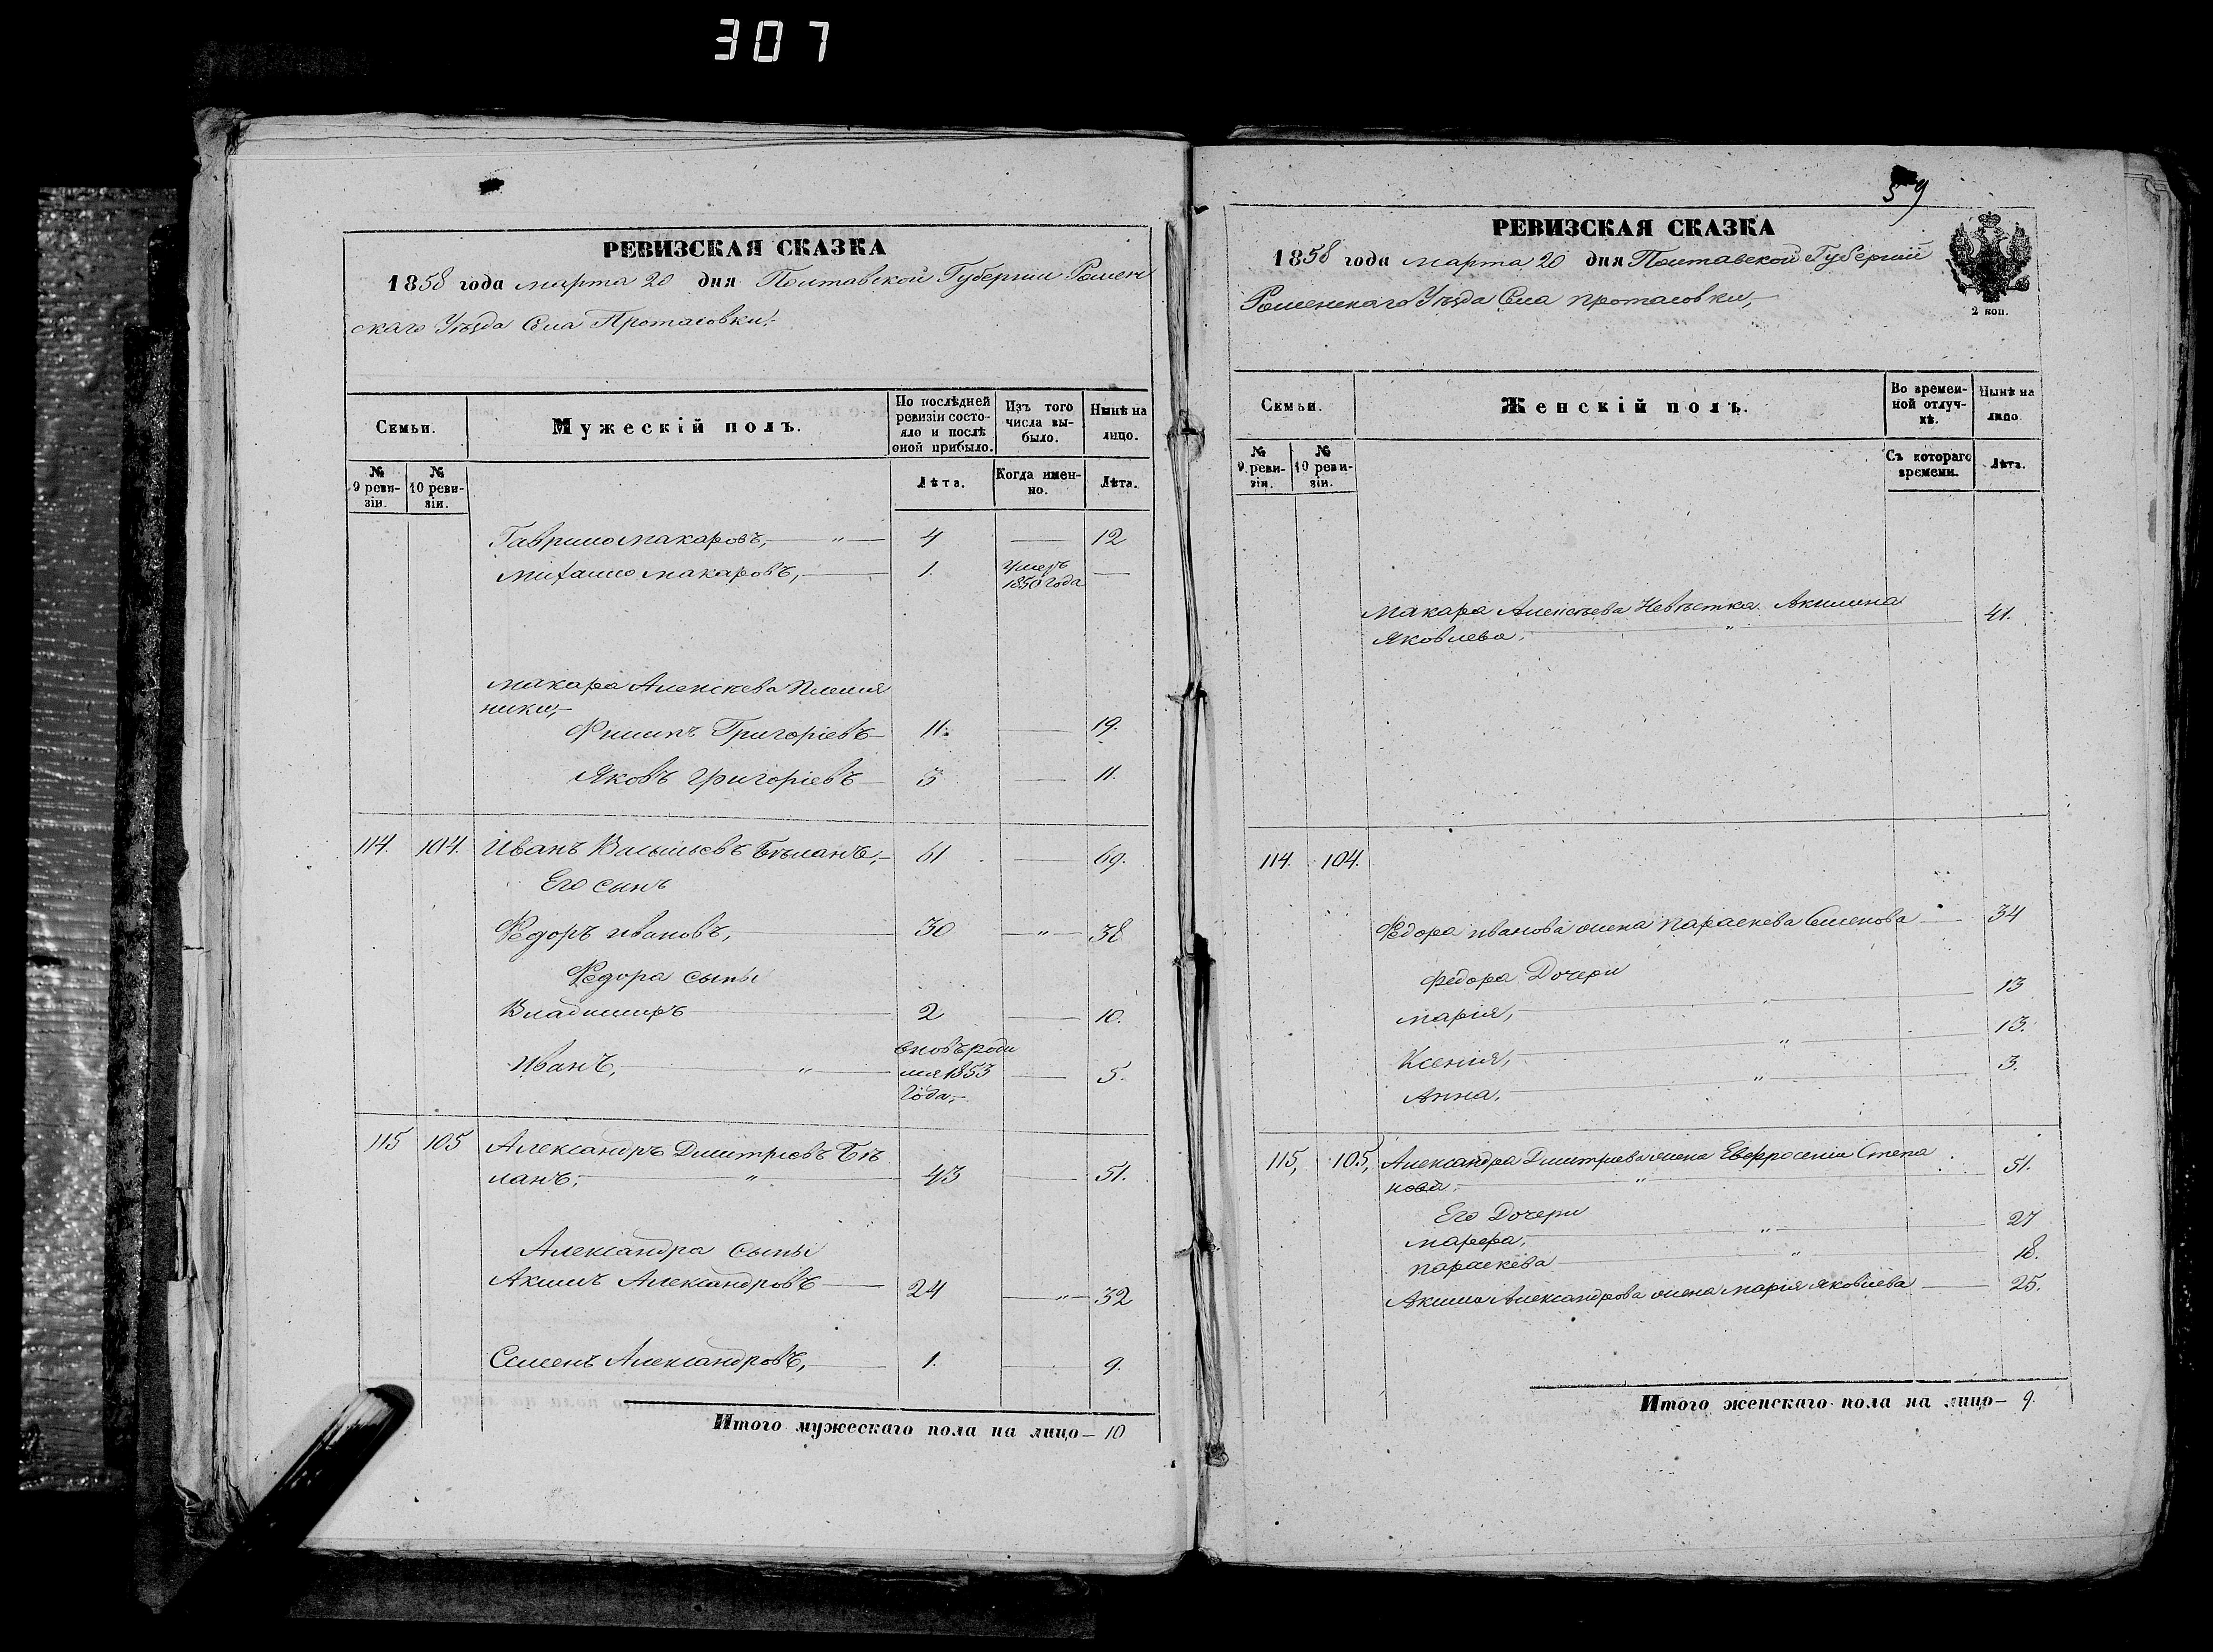 307
РЕВИЗСКАЯ СКАЗКА
1858 года марта 20 дня Полтавской Губернии Ромен
скаго Уѣзда Села Протасовки,
Семьи.
Мужескій полъ.
По послѣдней ревизіи состояло и послѣ оной прибыло.
Изъ того числа выбыло.
Нынѣ на лицо.
№ 9 ревизіи.
№ 10 ревизіи.
Лѣта.
Когда именно.
Лѣта.
Гаврило Макаровъ, — " — 4 — 12
Михайло Макаровъ, — 1. Умеръ 1850 года —
Макара Алексѣева племя
ники,
Филипъ Григоріевъ — 11. — 19.
Яковъ Григоріевъ — 3 — 11.
114. 104. Иванъ Васильевъ Бѣланъ, 61 — 69.
Его сынъ
Федоръ Ивановъ, — 30 — " — 38
Федора сыны
Владимиръ — 2 — 10.
Иванъ, — " — вновь роди
лся 1853 — 5.
года,
115 105 Александръ Дмитріевъ Бѣ
ланъ, — " — 43 — 51.
Александра сыны
Акимъ Александровъ — 24 — " — 32
Семенъ Александровъ, — 1. — 9.
Итого мужескаго пола на лицо — 10
59
РЕВИЗСКАЯ СКАЗКА
1858 года марта 20 дня Полтавской Губерніи
Роменскаго Уѣзда Села Протасовки,
2 коп.
Семьи.
Женскій полъ.
Во временной отлучкѣ.
Нынѣ на лицо.
№ 9 ревизіи.
№ 10 ревизіи.
Съ котораго времени.
Лѣта.
Макара Алексѣева Невѣстка Акилина
Яковлева, — " — 41.
114. 104.
Федора Иванова жена Параскева Семенова — 34
Федора Дочери
Марія, — " — 13
Ксенія, — " — 13.
Анна, — " — 3.
115, 105, Александра Дмитріева жена Евфросенія Степа
нова, — " — 51.
Его Дочери
Марфа, — " — 27
Параскева — " — 18.
Акима Александрова жена Марія Яковлева — 25.
Итого женскаго пола на лицо — 9.